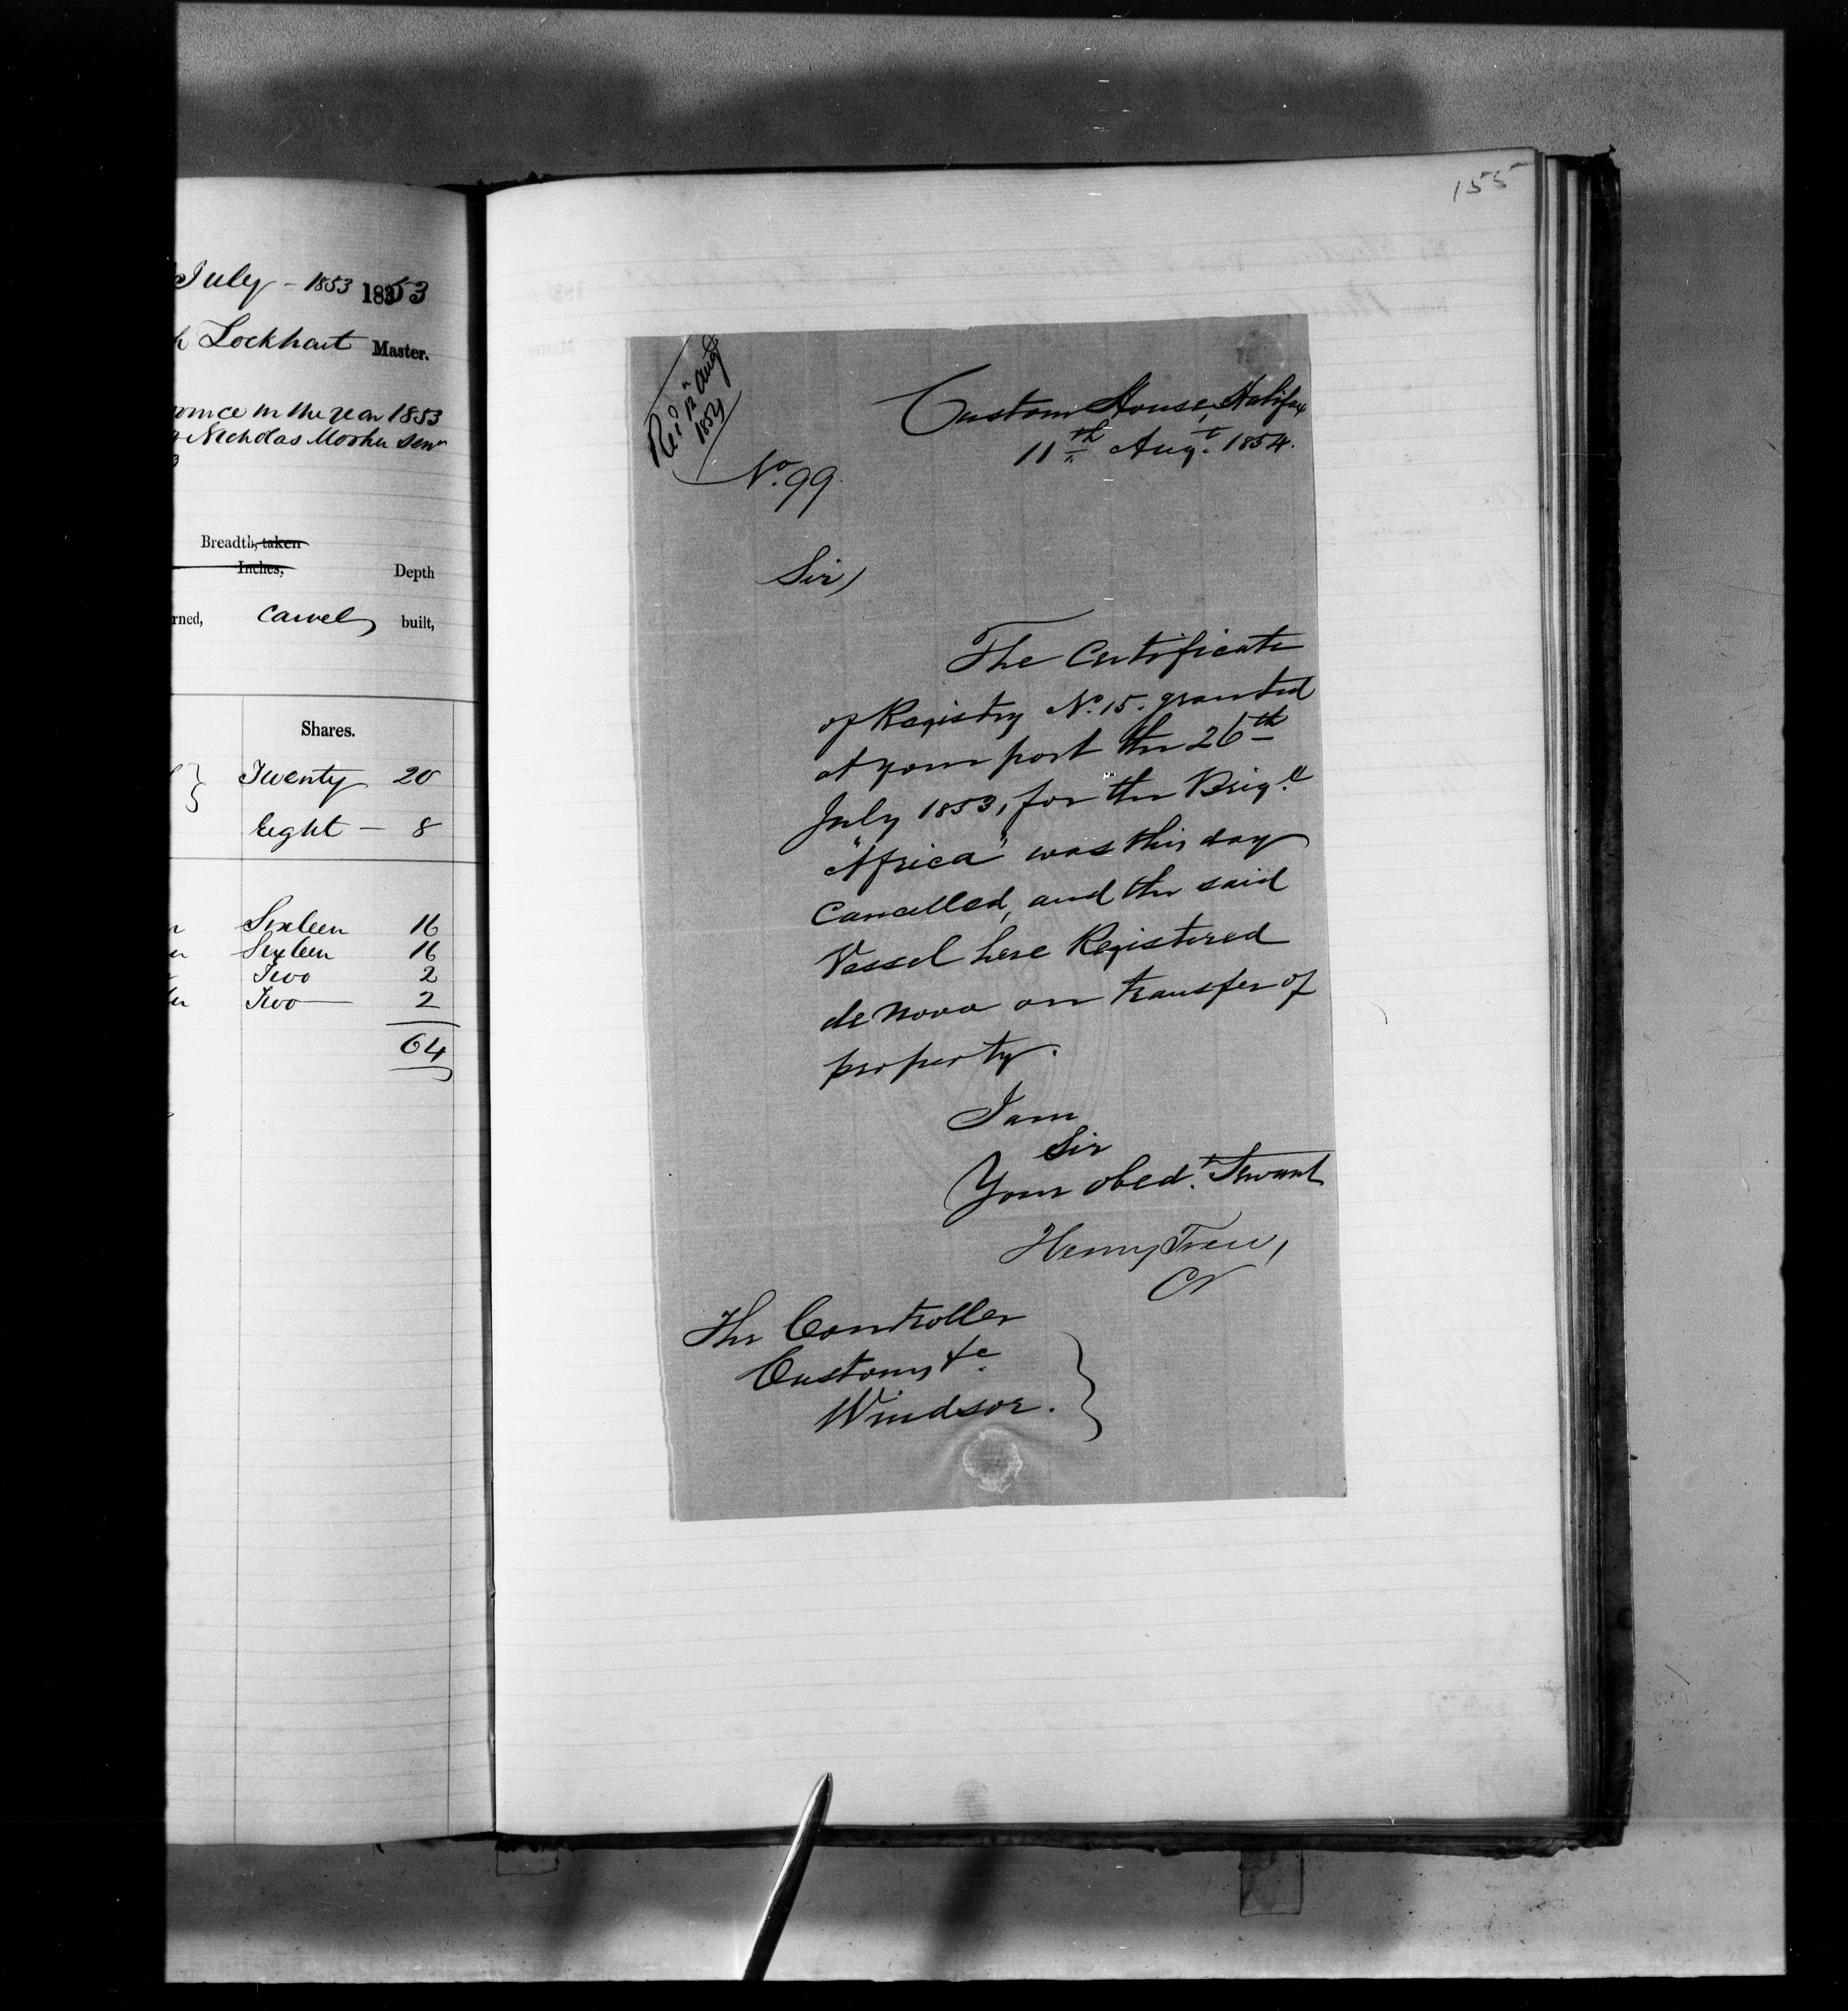 July - 1853 1853
Lockhart Master.
in the year 1853
Nicholas Mosher Senr
Breadth, taken
Inches,
Depth
rned, Carvel built,
Shares.
Twenty 20
Eight - 8
Sixteen 16
Sixteen 16
Two 2
Two 2
64
155
Recd 12 Augt
1854
Custom House, Halifax
11th Augt. 1854.
No. 99.
Sir,
The Certificate
of Registry No. 15. granted
at your port the 26th
July 1853, for the Brigt.
"Africa" was this day
Cancelled, and the said
Vessel here Registered
de novo on transfer of
property.
I am
Sir
Your obedt. Servant
Henry Trew,
The Controller
Customs &c.
Windsor.